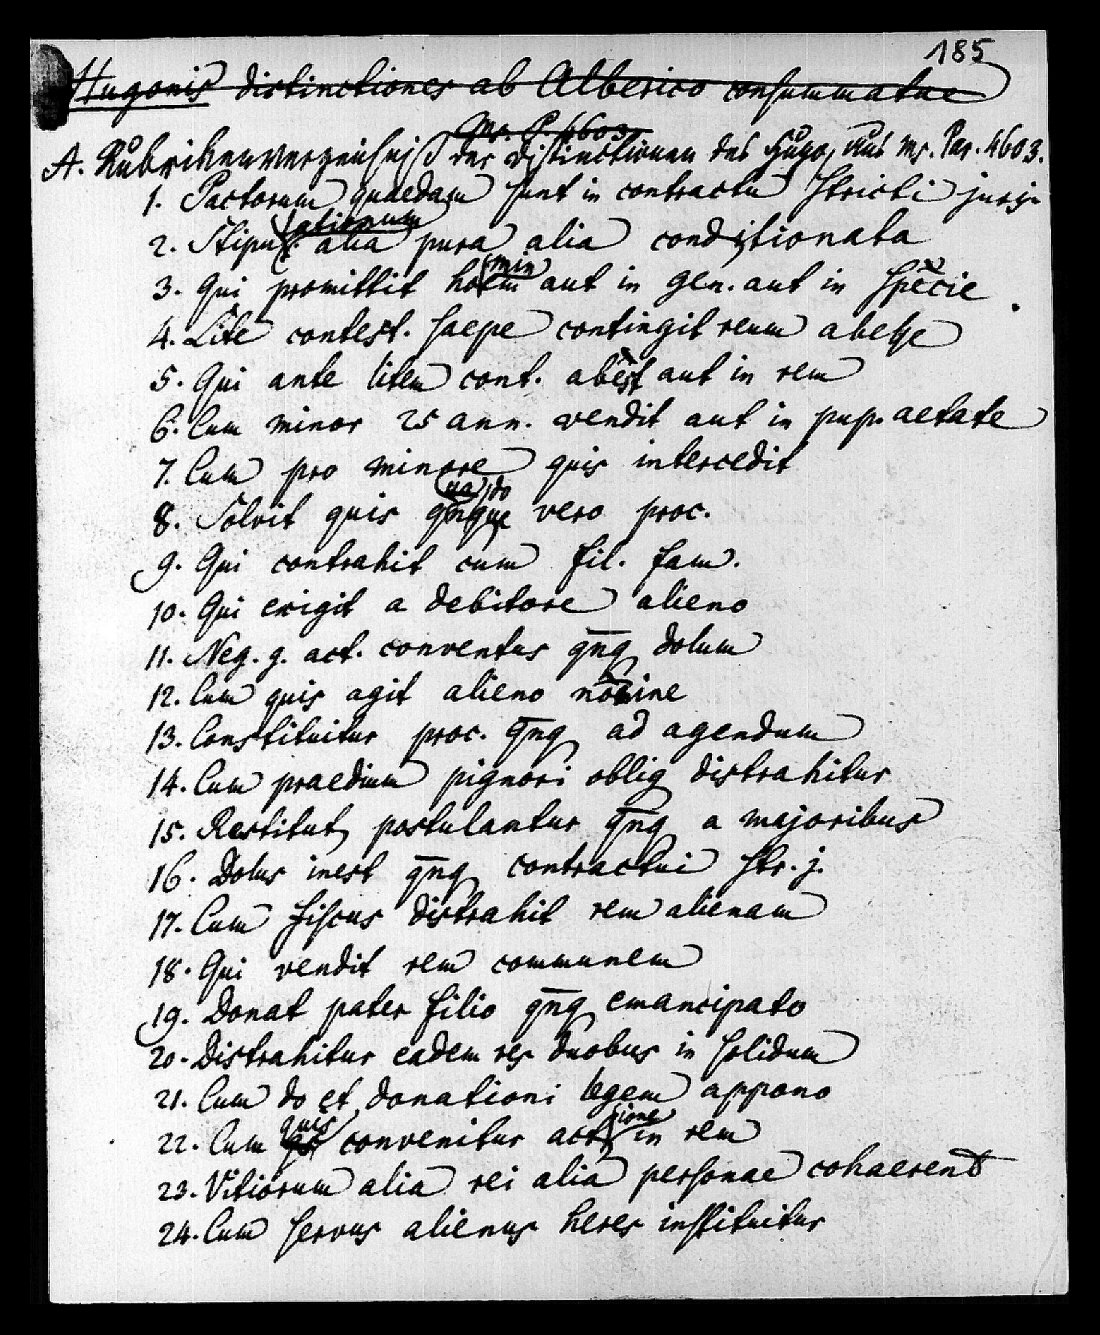 185
Hugonis distinctiones ab Alberico consummatae
Ms. P. 4603
A. Rubrikenverzeichniß der Distinctionen des Hugo, aus ms. Par. 4603.
1. Pactorum quaedam sunt in contractu stricti juris
2. Stipulationum alia pura alia conditionata
3. Qui promittit hominem aut in gen. aut in specie
4. Lite contest. saepe contingit reum abesse
5. Qui ante litem cont. abest aut in rem
6. Cum minor 25 ann. vendit aut in pup. aetate
7. Cum pro minore quis intercedit
8. Solvit quis quando vero proc.
9. Qui contrahit cum fil. fam.
10. Qui exigit a debitore alieno
11. Neg. g. act. conventus qnq dolum
12. Cum quis agit alieno noine
13. Constituitur proc. qnq ad agendum
14. Cum praedium pignori oblig distrahitur
15. Restitut postulantur qnq a majoribus
16. Dolus inest qnq contractui str. j.
17. Cum fiscus distrahit rem alienam
18. Qui vendit rem communem
19. Donat pater filio qnq emancipato
20. Distrahitur eadem res duobus in solidum
21. Cum do et donationi legem appono
22. Cum quis convenitur actione in rem
23. Vitiorum alia rei alia personae cohaerent
24. Cum servus alienus heres instituitur